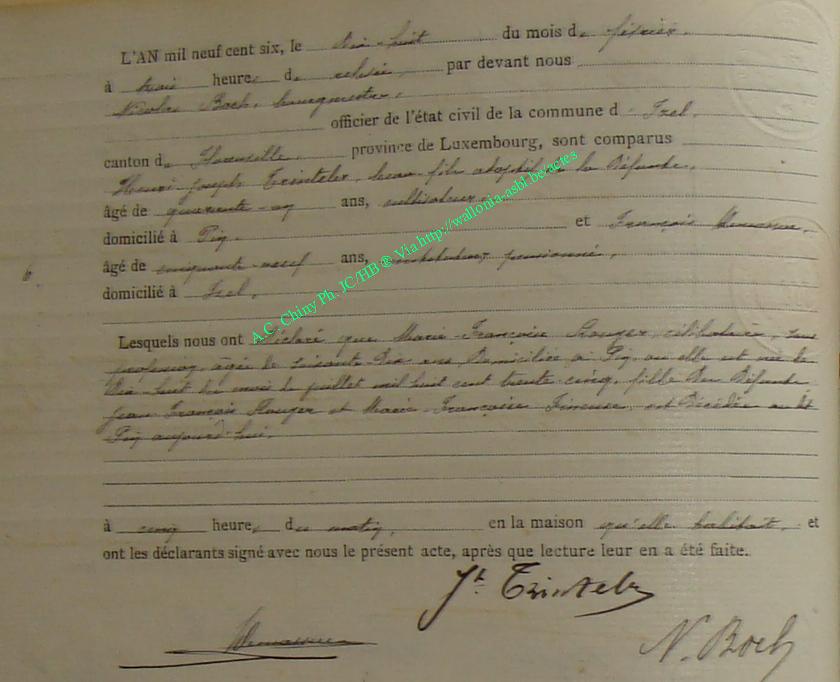 L'AN mil neuf cent six, le dix-huit du mois de février,
à trois heures de relevée, par devant nous
Nicolas Boch, bourgmestre,
officier de l'état civil de la commune d'Izel,
canton de Florenville, province de Luxembourg, sont comparus
Henri-Joseph Trinteler, beau-fils adoptif de la défunte,
âgé de quarante-un ans, cultivateur,
domicilié à Pin, et François
âgé de cinquante-neuf ans, pensionné,
domicilié à Izel,
6.
Lesquels nous ont déclaré que Marie-Françoise célibataire, sans
profession, âgée de soixante dix ans, domiciliée à Pin, où elle est née le
dix-huit du mois de juillet mil huit cent trente cinq, fille des défunts
Jean François et Marie-Françoise est décédée au dit
Pin aujourd'hui,
à cinq heures du matin, en la maison qu'elle habitait, et
ont les déclarants signé avec nous le présent acte, après que lecture leur en a été faite.
N. Boch
A.C. Chiny Ph. JC/HB ® Via http://wallonia-asbl.be/actes